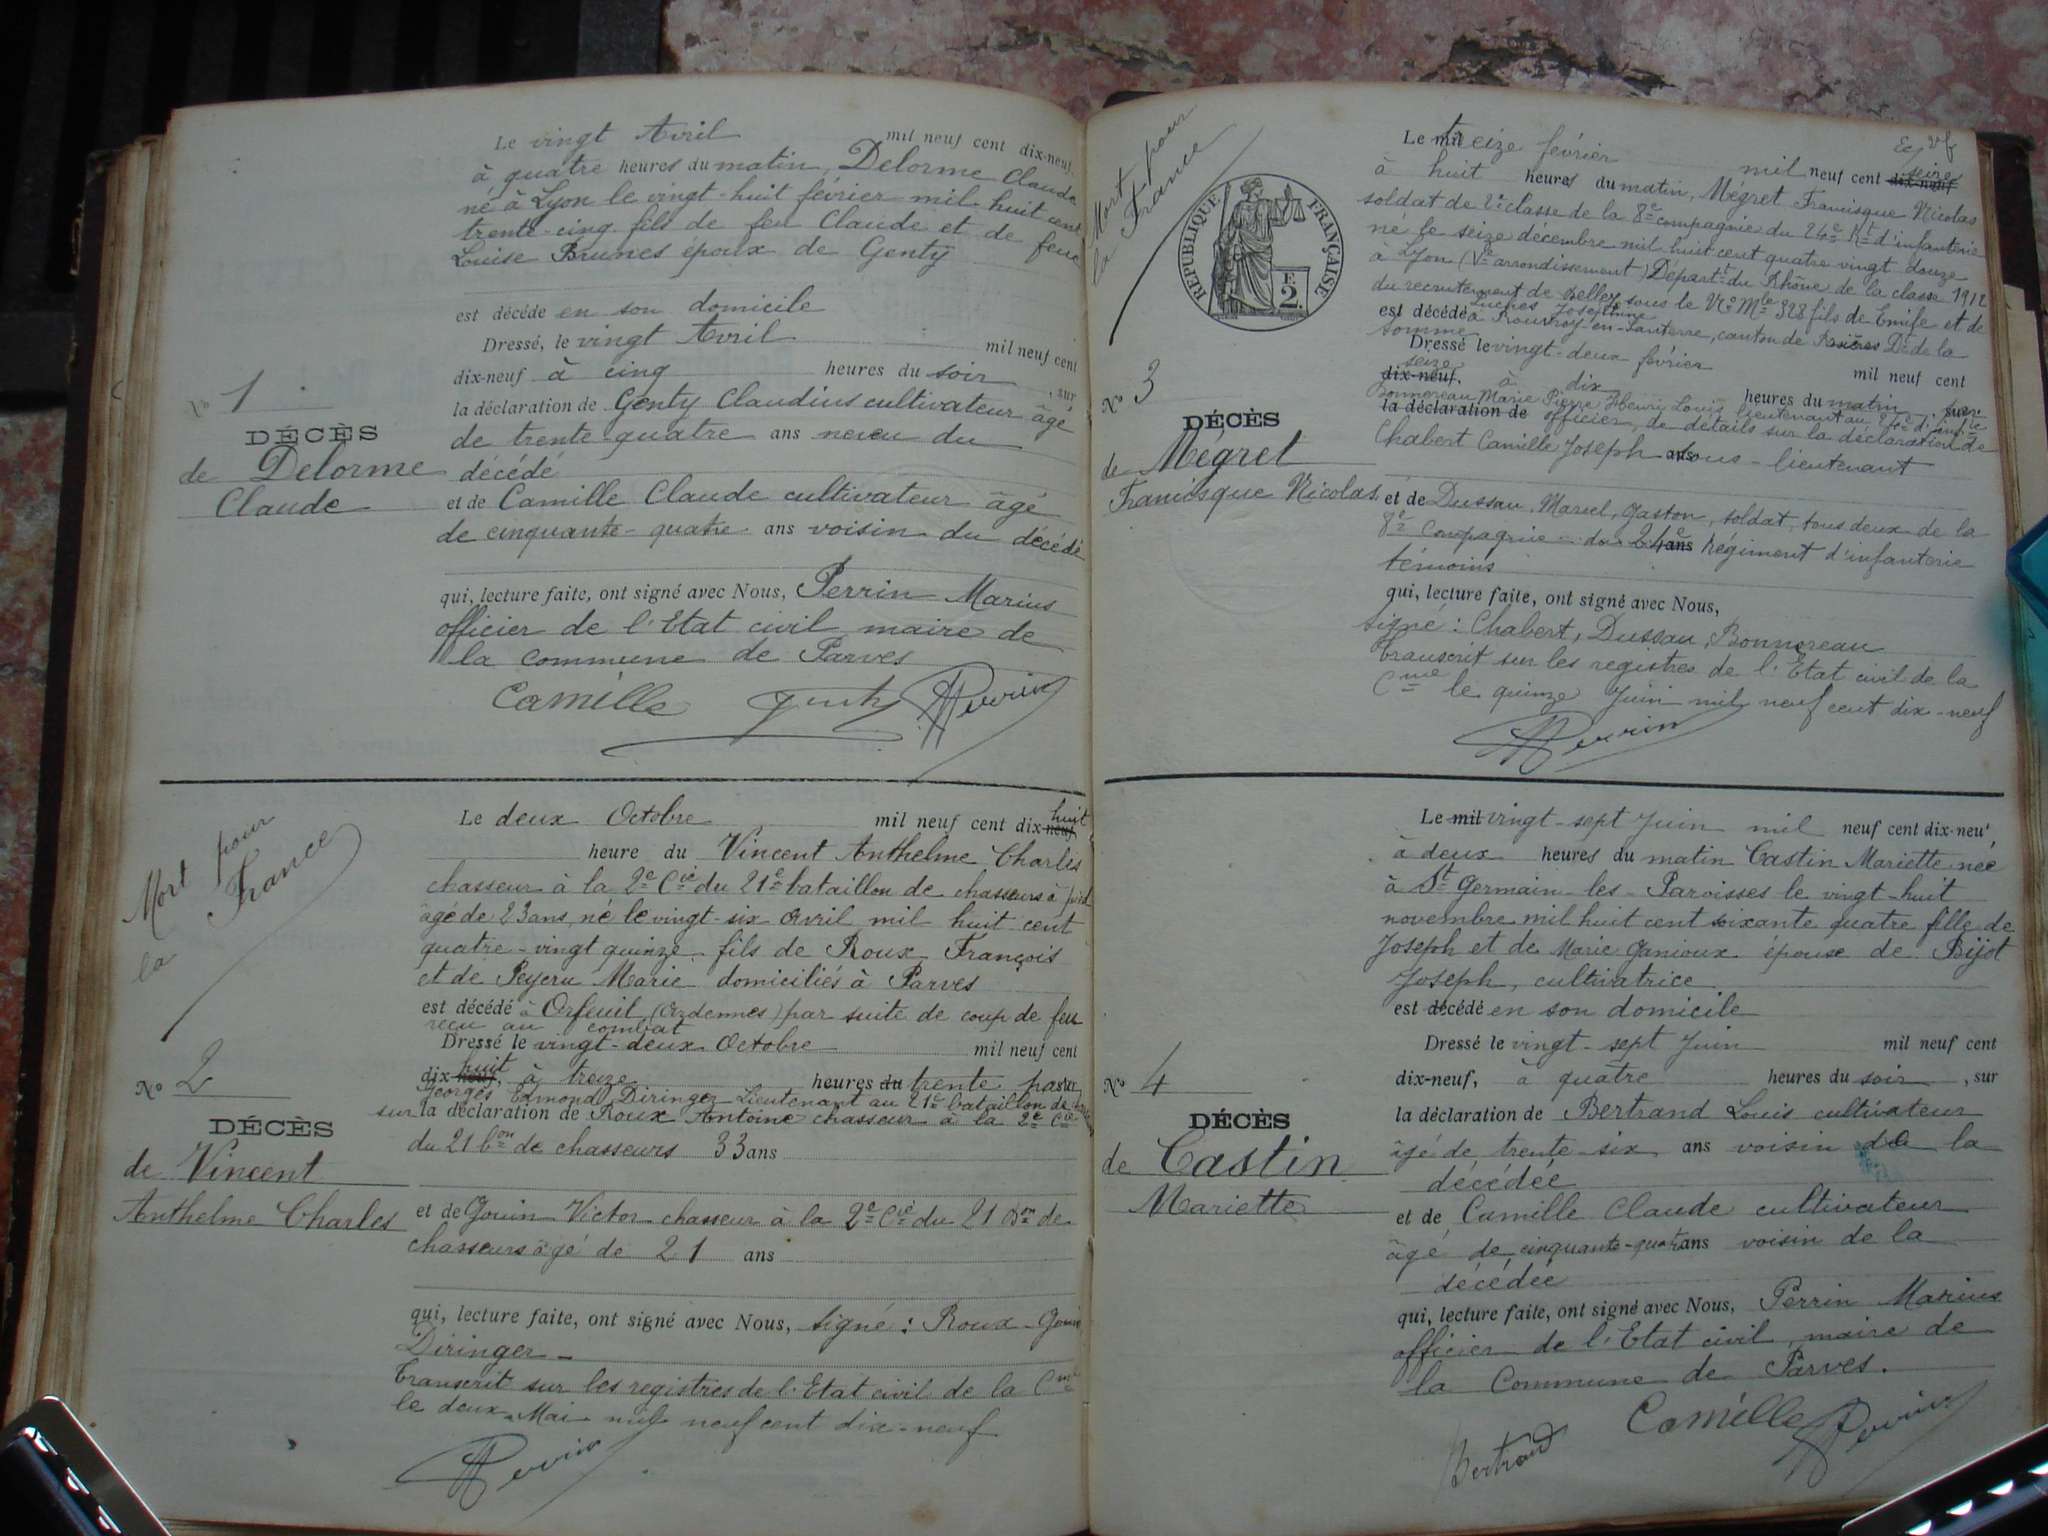 Le vingt Avril mil neuf cent dix-neuf,
à quatre heures du matin, Delorme Claude
né à Lyon le vingt-huit février mil huit cent
trente-cinq fils de feu Claude et de feue
Louise Brunes époux de Genty
est décédé en son domicile
Dressé, le vingt Avril mil neuf cent
dix-neuf à cinq heures du soir, sur
la déclaration de Genty Claudius cultivateur âgé
de trente-quatre ans neveu du
décédé
et de Camille Claude cultivateur âgé
de cinquante-quatre ans voisin du décédé
qui, lecture faite, ont signé avec Nous, Perrin Marius
officier de l'Etat civil maire de
la commune de Parves
Camille Genty Perrin
No 1
DÉCÈS
de Delorme
Claude
Mort pour
la France
No 2
DÉCÈS
de Vincent
Anthelme Charles
Le deux Octobre mil neuf cent dix-neuf huit
heure du Vincent Anthelme Charles
chasseur à la 2e Cie du 21e bataillon de chasseurs à pied
âgé de 23 ans, né le vingt-six avril mil huit cent
quatre-vingt quinze fils de Roux François
et de Peyeru Marie domiciliés à Parves
est décédé à Orfeuil (Ardennes) par suite de coup de feu
reçu au combat
Dressé le vingt-deux Octobre mil neuf cent
dix-neuf, huit à treize heures du trente par sur
Georges Edmond Diringer Lieutenant au 21e bataillon de
sur la déclaration de Roux Antoine chasseur à la 2e Cie
du 21 bon de chasseurs 33 ans
et de Gouin Victor chasseur à la 2e Cie du 21 Bon de
chasseurs âgé de 21 ans
qui, lecture faite, ont signé avec Nous, signé : Roux - Gouin
Diringer -
Transcrit sur les registres de l'Etat civil de la Cne
le deux Mai mil neuf cent dix-neuf
Perrin
Mort pour
la France
RÉPUBLIQUE FRANÇAISE
F.
2.
No 3
DÉCÈS
de Mégret
Francisque Nicolas
Le mil treize février mil neuf cent dix-neuf seize
à huit heures du matin, Mégret Francisque Nicolas
soldat de 2e classe de la 8e compagnie du 24e Rt d'infanterie
né le seize décembre mil huit cent quatre vingt douze
à Lyon (Ve arrondissement) Départt du Rhône de la classe 1912
du recrutement de Belley sous le No Mle 328 fils de Emile et de
Joséphine
est décédé à Rouvroy-en-Santerre, canton de Rosières Dt de la
Somme
Dressé le vingt-deux février mil neuf cent
dix-neuf, seize à dix heures du matin, par sur
Bonnoreau Marie Pierre Henri Louis lieutenant au 24e d'inf
la déclaration de officier de détails sur la déclaration de
Chabert Camille Joseph ans sous-lieutenant
et de Dussau, Marcel, Gaston, soldat, tous deux de la
8e Compagnie du 24e ans régiment d'infanterie
témoins
qui, lecture faite, ont signé avec Nous,
signé : Chabert, Dussau, Bonnoreau
transcrit sur les registres de l'Etat civil de la
Cne le quinze Juin mil neuf cent dix-neuf
Perrin
No 4
DÉCÈS
de Castin
Mariette
Le mil vingt-sept Juin mil neuf cent dix-neuf,
à deux heures du matin Castin Mariette née
à St Germain-les-Paroisses le vingt-huit
novembre mil huit cent soixante quatre fille de
Joseph et de Marie Ganioux épouse de Bijot
Joseph, cultivatrice
est décédé en son domicile
Dressé le vingt-sept Juin mil neuf cent
dix-neuf, à quatre heures du soir, sur
la déclaration de Bertrand Louis cultivateur
âgé de trente-six ans voisin de la
décédée
et de Camille Claude cultivateur
âgé de cinquante-quatre ans voisin de la
décédée
qui, lecture faite, ont signé avec Nous, Perrin Marius
officier de l'Etat civil, maire de
la Commune de Parves.
Bertrand Camille Perrin